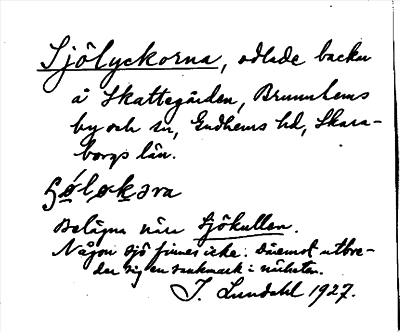 Sjölyckorna, odlade backar
å Skattegården, Brunnhems
by och sn, Gudhems hd, Skara-
borgs län.
Belägna nära Sjökullen.
Någon sjö finnes icke. Däremot utbre-
der sig en sankmark i närheten.
J. Lundahl 1927.